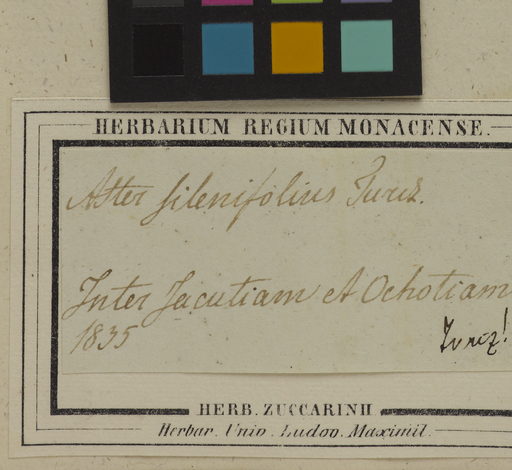 HERBARIUM REGIUM MONACENSE.
Aster silenifolius Turcz.
Inter Jacutiam et Ochotiam
1835
Turcz!
HERB. ZUCCARINII
Herbar. Univ. Ludov. Maximil.